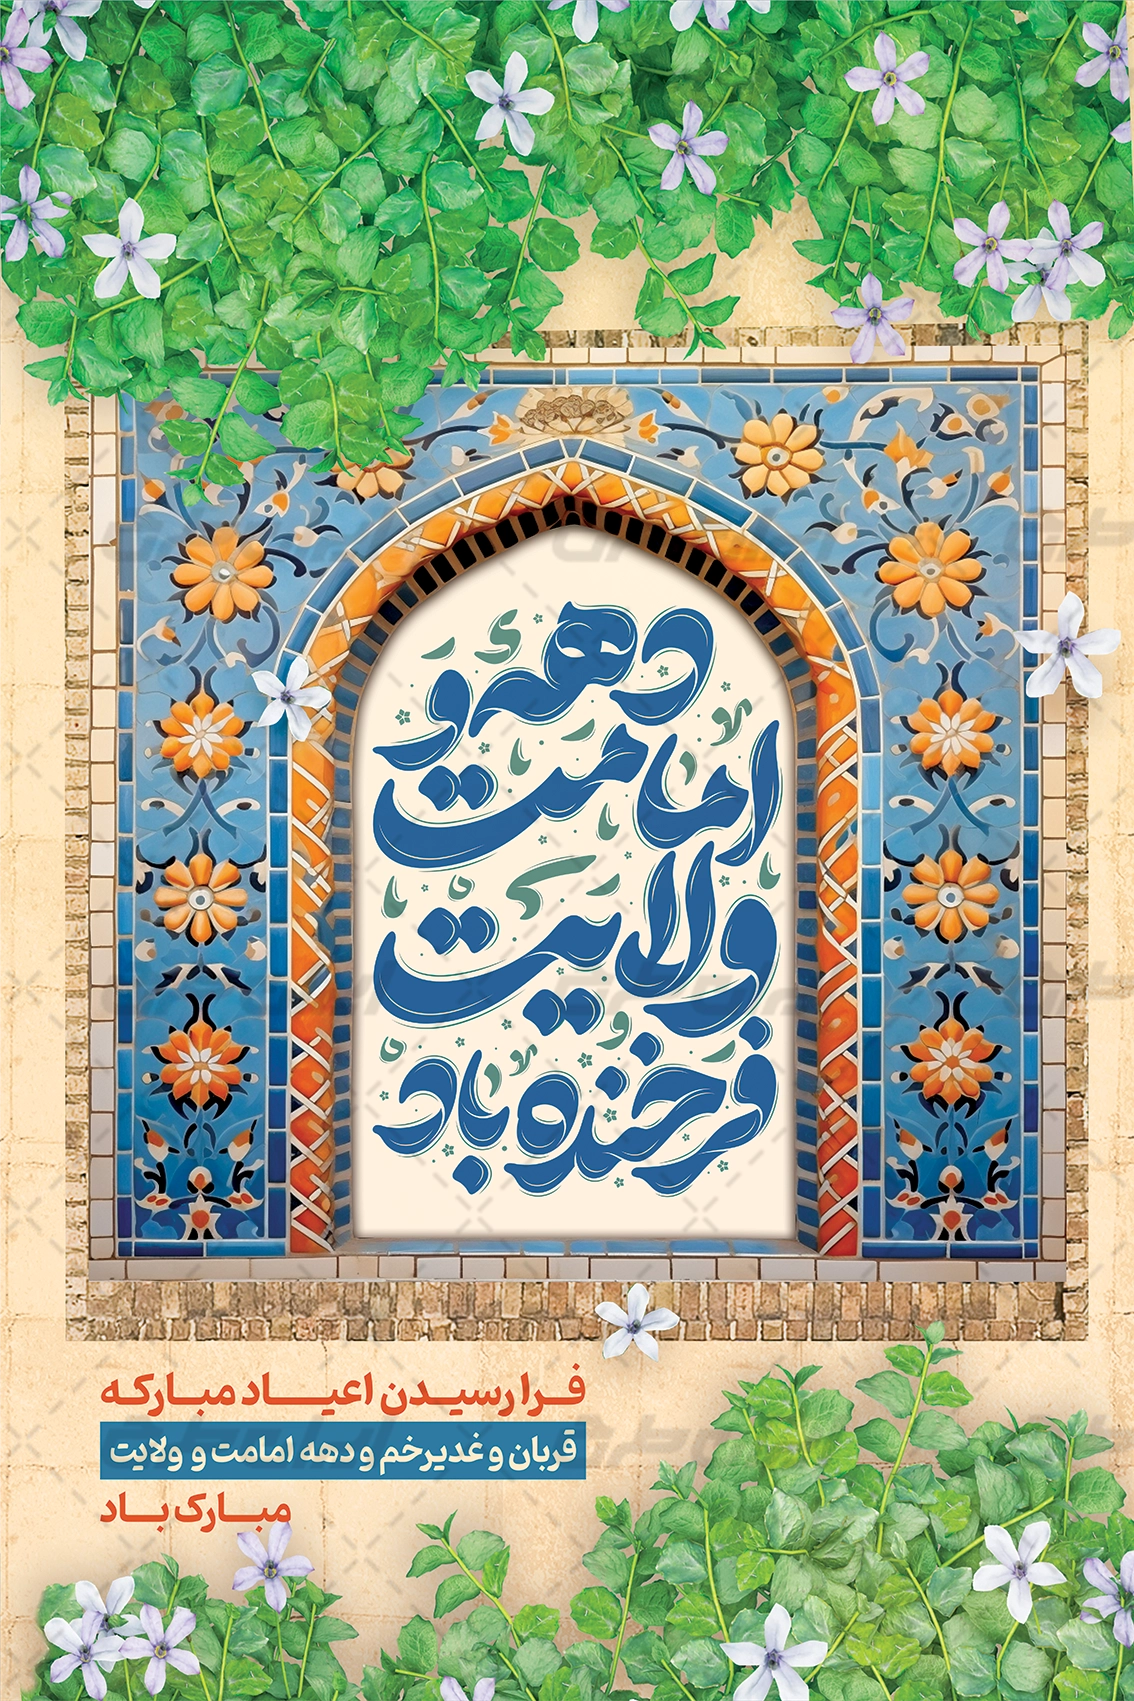 دهه و
امامت
ولایت
فرخنده باد
فـرا رسیـدن اعیـاد مبـارکـه
قربان و غدیرخم و دهه امامت و ولایت
مبـارک بـاد